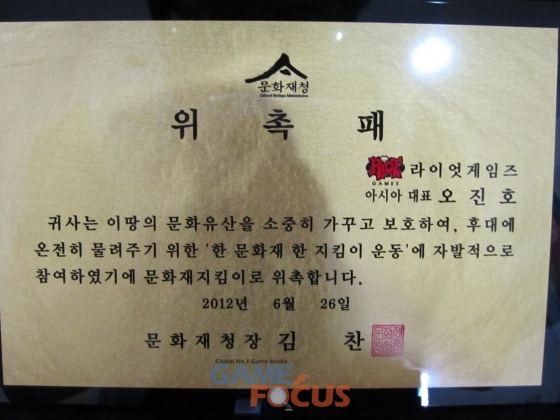 문화재청
Cultural Heritage Administration
위 촉 패
RIOT
GAMES
라이엇게임즈
아시아 대표 오 진 호
귀사는 이땅의 문화유산을 소중히 가꾸고 보호하여, 후대에
온전히 물려주기 위한 '한 문화재 한 지킴이 운동'에 자발적으로
참여하였기에 문화재지킴이로 위촉합니다.
2012년 6월 26일
문화재청장 김 찬
Global No.1 Game Media
GAME
FOCUS